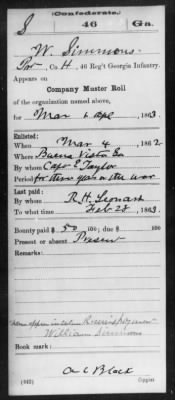 (Confederate.)
S 46 Ga.
W. Simmons
Pvt., Co. H, 46 Reg't Georgia Infantry.
Appears on
Company Muster Roll
of the organization named above,
for Mar & Apl, 1863.
Enlisted:
When Mar 4, 1862.
Where Buena Vista Ga
By whom Capt E. Taylor
Period for three years or the war
Last paid:
By whom R. H. Leonard
To what time Feb 28, 1863.
Bounty paid $ 50 /100; due $ /100
Present or absent Present
Remarks:
Name appears in column
William Simmons
Book mark:
(642) Copyist.